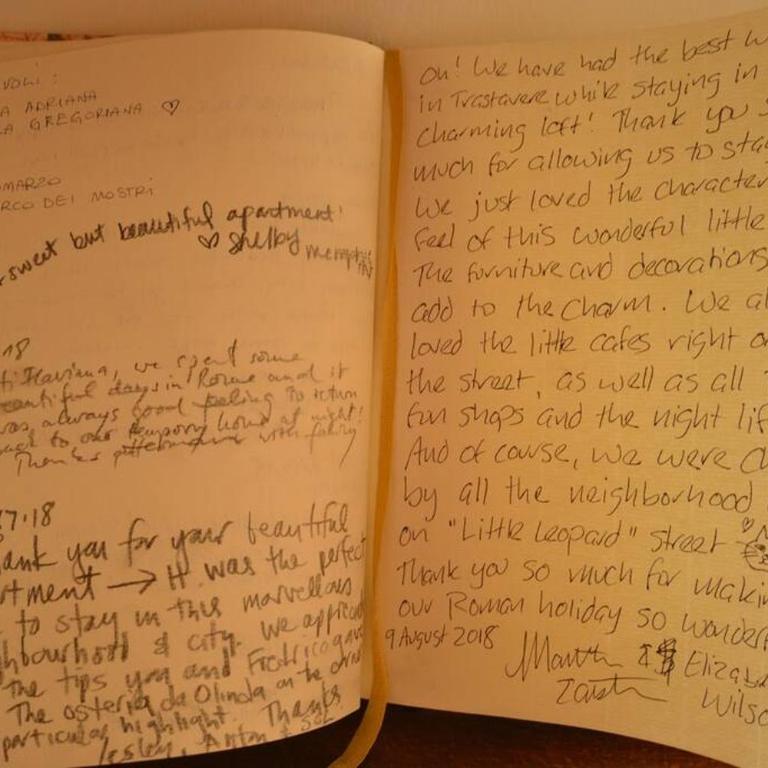 VOLI:
A ADRIANA
A GREGORIANA ♡
OMARZO
RCO DEI MOSTRI
sweet but beautiful apartment!
♡ Shelby Memphis
18
Flaviana, we spent some
eautiful days in Rome and it
was always good feeling to return
back to our temporary home at night!
Thanks with
7.18
ank you for your beautiful
rtment → It was the perfect
to stay in this marvellous
hbourhood & city. We appreci
the tips you and Fedrico gave
The osteria da Olinda on the
particular highlight. Thanks
Lesley, Anton & Sol
Oh! We have had the best w
in Trastavere while staying in
charming loft! Thank you s
much for allowing us to stay
We just loved the character
feel of this wonderful little
The furniture and decorations
add to the charm. We al
loved the little cafes right o
the street, as well as all
fun shops and the night lif
And of course, we were c
by all the neighborhood
on "Little Leopard" street
Thank you so much for makin
our Roman holiday so wonderf
9 August 2018
Elizab
Wilso